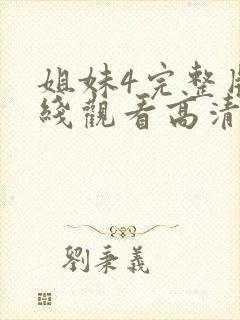 姐妹4完整
綫觀看高清
劉秉義